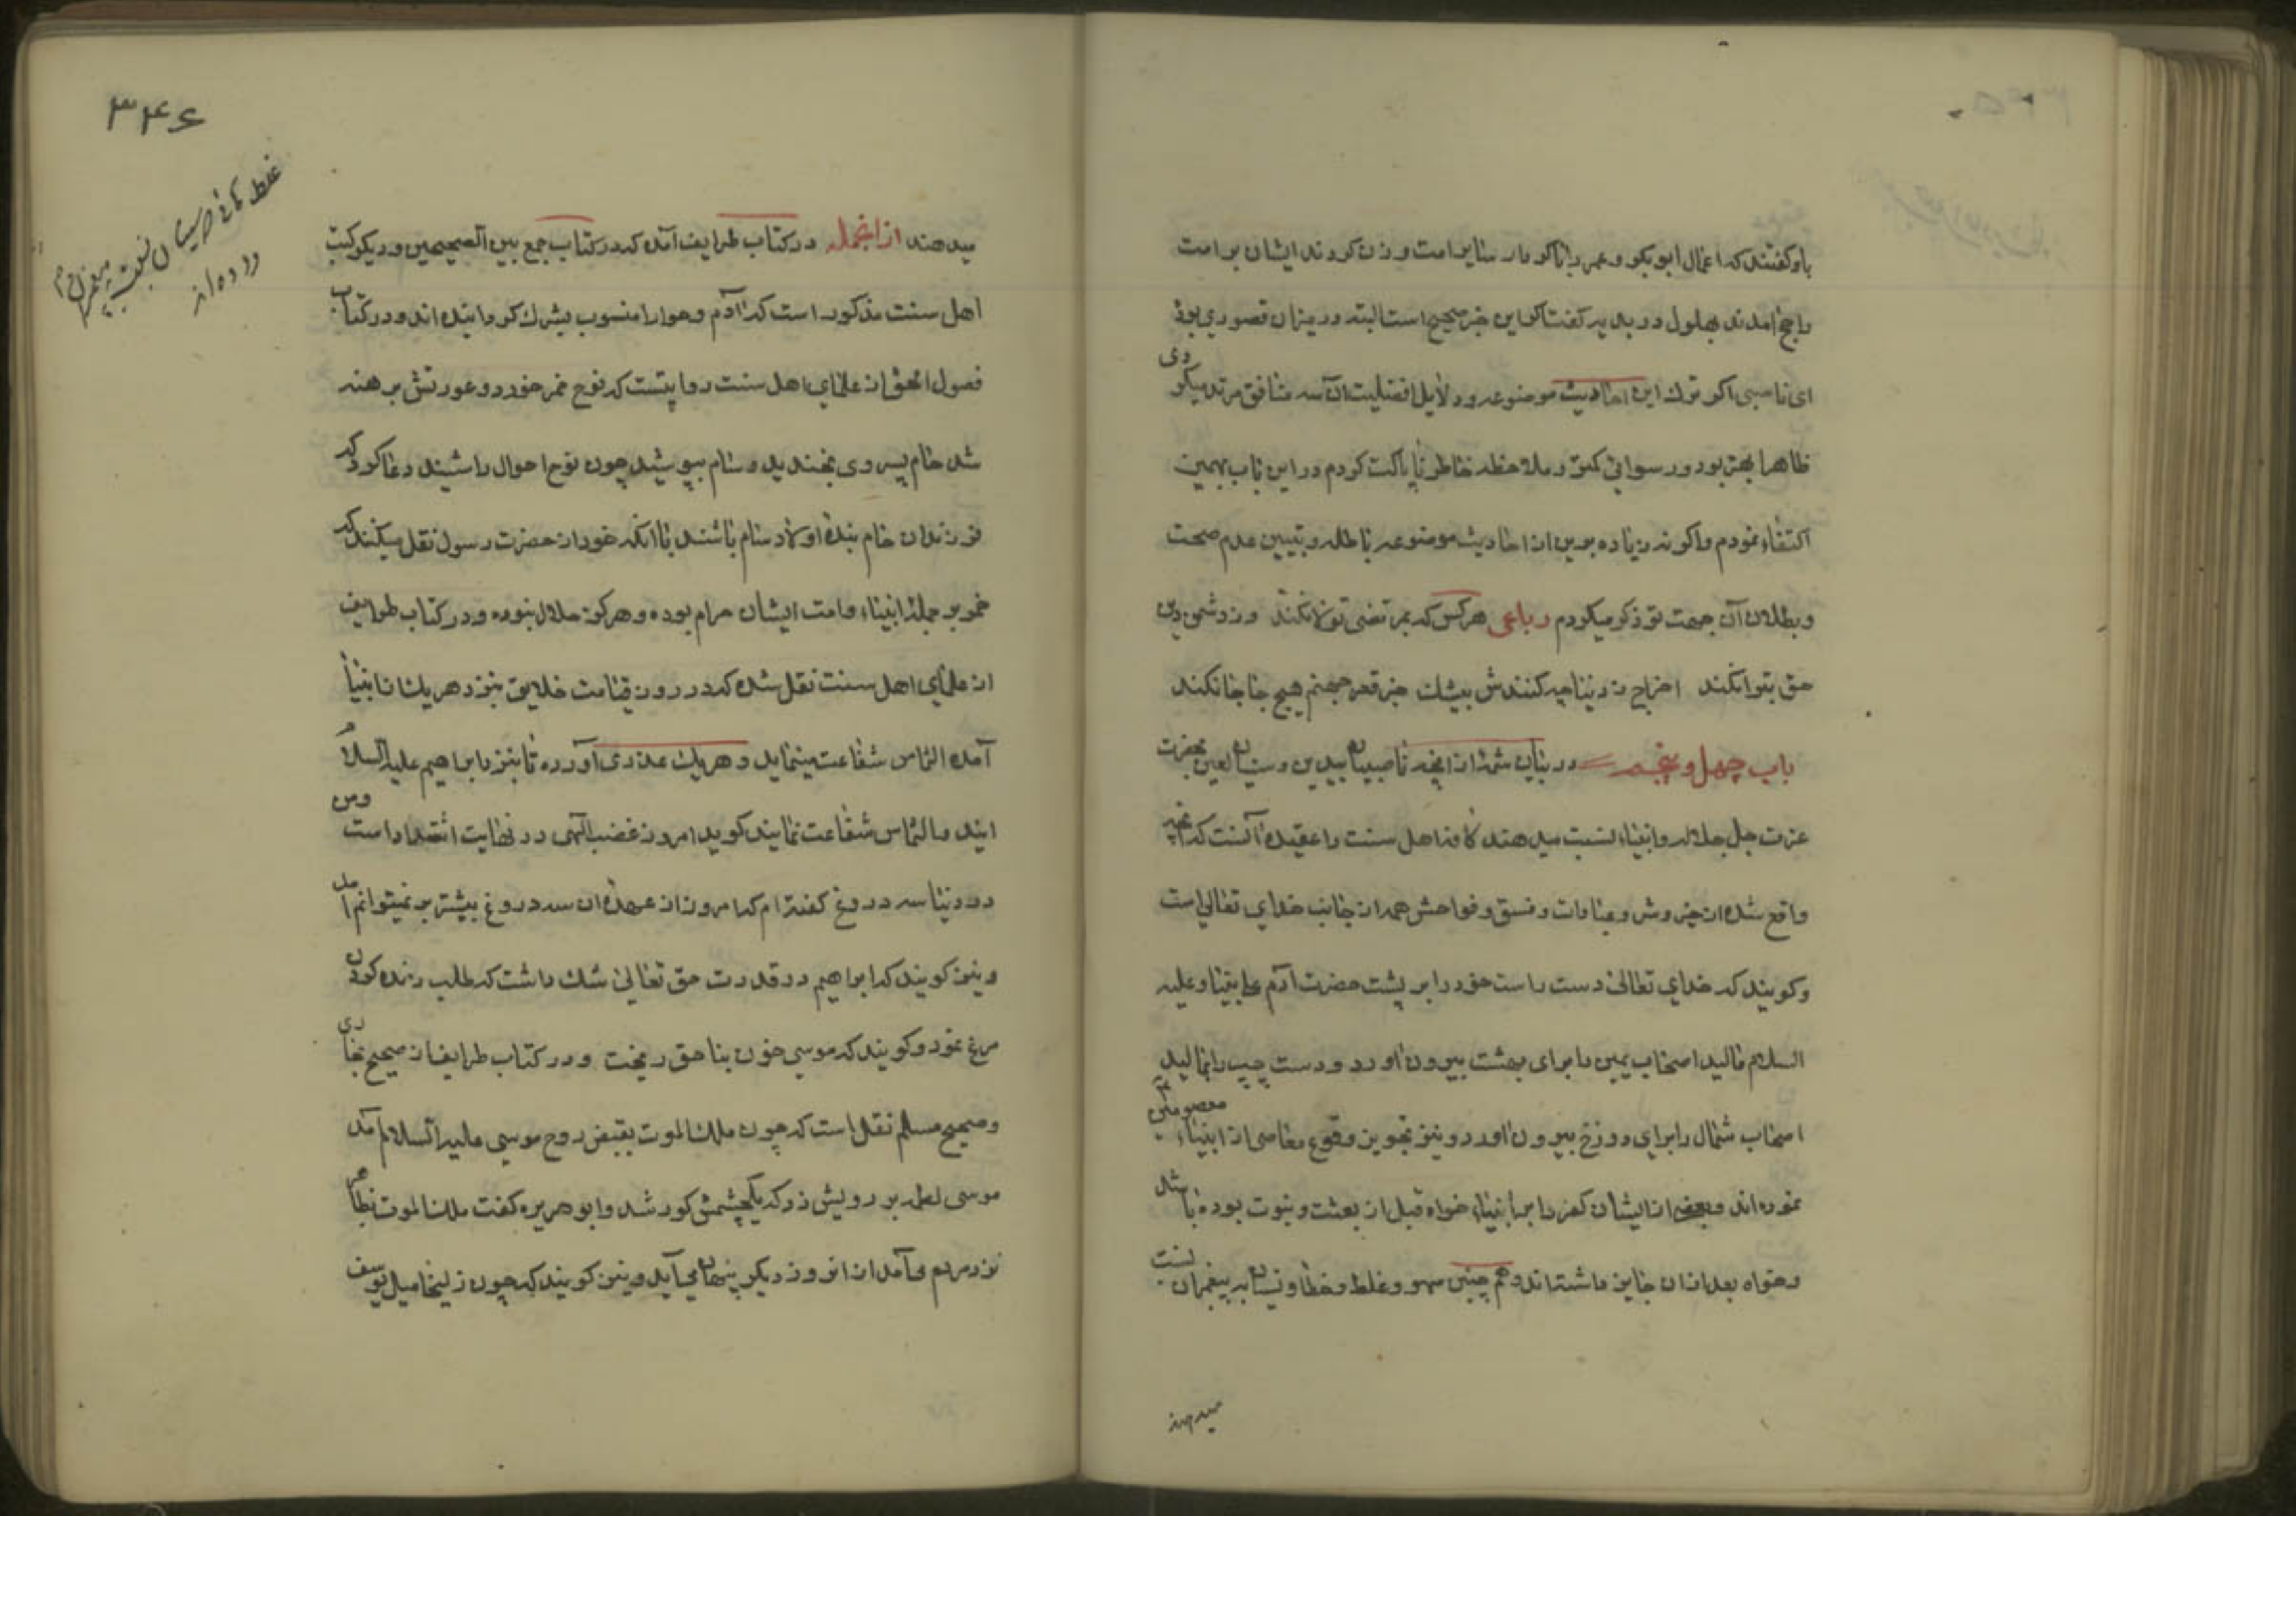 با و گفتند که اعمال ابوبکر و عمر را با کردار سایر امت وزن کردند ایشان بر امت
راجح آمدند بهلول در بدیهه گفت اگر این خبر صحیح است البته در میزان قصوری بوده
ای ناصبی اگر ترک این احادیث موضوعه و دلایل افضلیت آن سه منافق مرتد میکردی
ظاهرا بهتر بود و رسوائی کمتر و ملاحظه خاطر ناپاکت کردم در این باب بهمین
اکتفاء نمودم و اگر نه زیاده برین از احادیث موضوعه باطله و تبیین عدم صحت
و بطلان آن جهت تو ذکر میکردم رباعی هرکس که بمرتضی تولا نکند وز دشمن دین
حق تبرا نکند اخراج ز دنیا چه کنندش بیشک جز قعر جهنم هیچ جا جا نکند
باب چهل و پنجم در بیان شمه از آنچه ناصبیان بیدین و سنیان لعین بحضرت
عزت جل جلاله و انبیاء نسبت میدهند کافه اهل سنت را عقیده آنست که آنچه
واقع شده از خیر و شر و عبادات و فسق و فواحش همه از جانب خدای تعالی است
و گویند که خدای تعالی دست راست خود را بر پشت حضرت آدم علی نبینا و علیه
السلام مالید اصحاب یمین را برای بهشت بیرون آورد و دست چپ را بمالید
اصحاب شمال را برای دوزخ بیرون آورد و نیز تجویز وقوع معاصی از انبیاء معصومین
نموده اند و بعضی از ایشان کفر را بر انبیاء خواه قبل از بعثت و نبوت بوده باشد
و خواه بعد از آن جایز داشته اند و هم چنین سهو و غلط و خطا و نسیان به پیغمبران نسبت
میدهند
۳۴۶
میدهند از آنجمله در کتاب طرایف آمده که در کتاب جمع بین الصحیحین و دیگر کتب
اهل سنت مذکور است که آدم و حوا را منسوب بشرک گردانیده اند و در کتاب
فصول الحق از علمای اهل سنت روایتست که نوح خمر خورد و عورتش برهنه
شد حام پسر وی بخندید و سام بپوشید چون نوح احوال را شنید دعا کرد که
فرزندان حام بنده اولاد سام باشند با آنکه خود از حضرت رسول نقل میکنند که
خمر بر جمله انبیاء و امت ایشان حرام بوده و هرگز حلال نبوده و در کتاب طرایف
از علمای اهل سنت نقل شده که در روز قیامت خلایق بنزد هریک از انبیا
آمده التماس شفاعت مینمایند و هریک عذری آورده تا بنزد ابراهیم علیه السلام
آیند و التماس شفاعت نمایند گوید امروز غضب الهی در نهایت اشتداد است و من
در دنیا سه دروغ گفته ام که امروز از عهده آن سه دروغ بیشتر بر نمیتوانم آمد
و نیز گویند که ابراهیم در قدرت حق تعالی شک داشت که طلب زنده کردن
مرغ نمود و گویند که موسی خون بناحق ریخت و در کتاب طرایف از صحیح بخاری
و صحیح مسلم نقل است که چون ملک الموت بقبض روح موسی علیه السلام آمد
موسی لطمه بر رویش زد که یکچشمش کور شد و ابوهریره گفت ملک الموت بظاهر
نزد مردم می آمد از آنروز دیگر پنهان می آید و نیز گویند که چون زلیخا میل یوسف